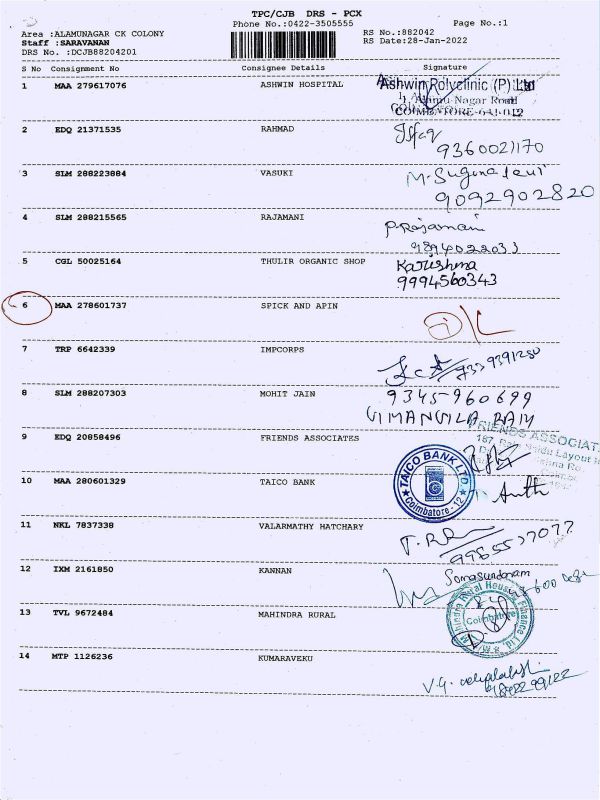 TPC/CJB DRS - PCX
Phone No.:0422-3505555 Page No.:1
Area :ALAMUNAGAR CK COLONY RS No.:882042
Staff :SARAVANAN RS Date:28-Jan-2022
DRS No. :DCJB88204201
S No Consignment No Consignee Details Signature
1 MAA 279617076 ASHWIN HOSPITAL Ashwin Polyclinic (P) Ltd
Alamu Nagar Road
COIMBATORE-641 012
2 EDQ 21371535 RAHMAD
9360021170
3 SLM 288223884 VASUKI M. Suguna Devi
9092902820
4 SLM 288215565 RAJAMANI P.Rajamani
9894022033
5 CGL 50025164 THULIR ORGANIC SHOP Karishma
9994560343
6 MAA 278601737 SPICK AND APIN
7 TRP 6642339 IMPCORPS
8 SLM 288207303 MOHIT JAIN 9345960699
9 EDQ 20858496 FRIENDS ASSOCIATES FRIENDS ASSOCIAT
10 MAA 280601329 TAICO BANK TAICO BANK LTD
Coimbatore - 12
11 NKL 7837338 VALARMATHY HATCHARY
12 IXM 2161850 KANNAN Somasundaram
13 TVL 9672484 MAHINDRA RURAL Mahindra Rural Housing Finance Ltd
Coimbatore
14 MTP 1126236 KUMARAVEKU